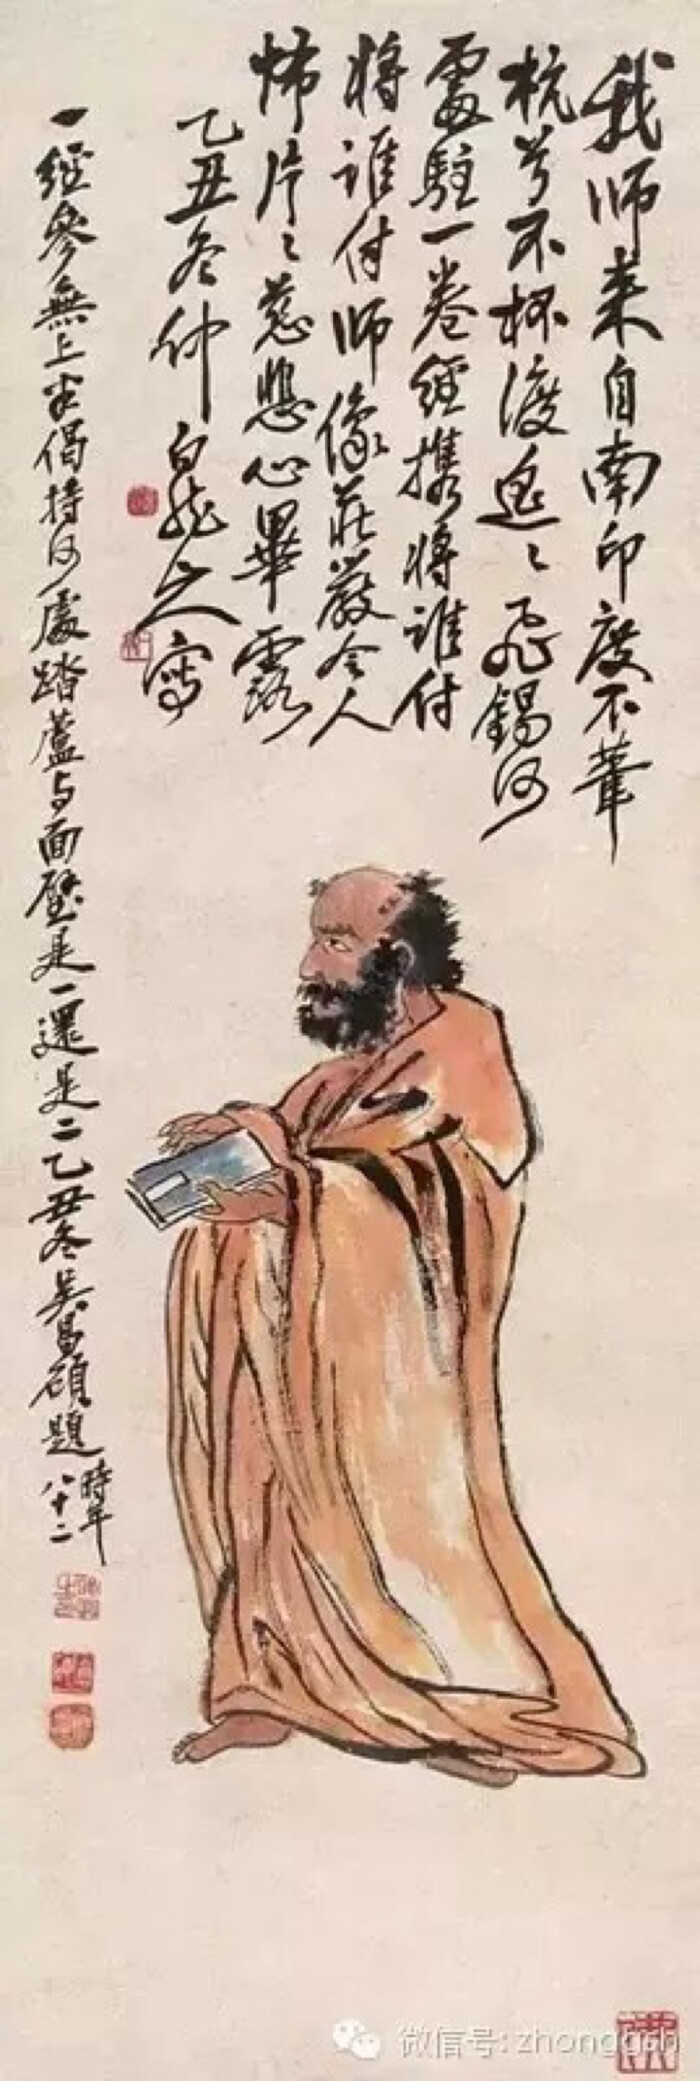 我师来自南印度不苇
杭兮不杯渡遥〻飞锡何
处驻一卷經携将誰付
将誰付师像莊嚴令人
怖片〻慈悲心畢露
乙丑冬仲白龍山人寫
一經參無上半偈持何處踏蘆与面壁是一還是二乙丑冬吴昌碩題時年
八十二
微信号:zhonggsh